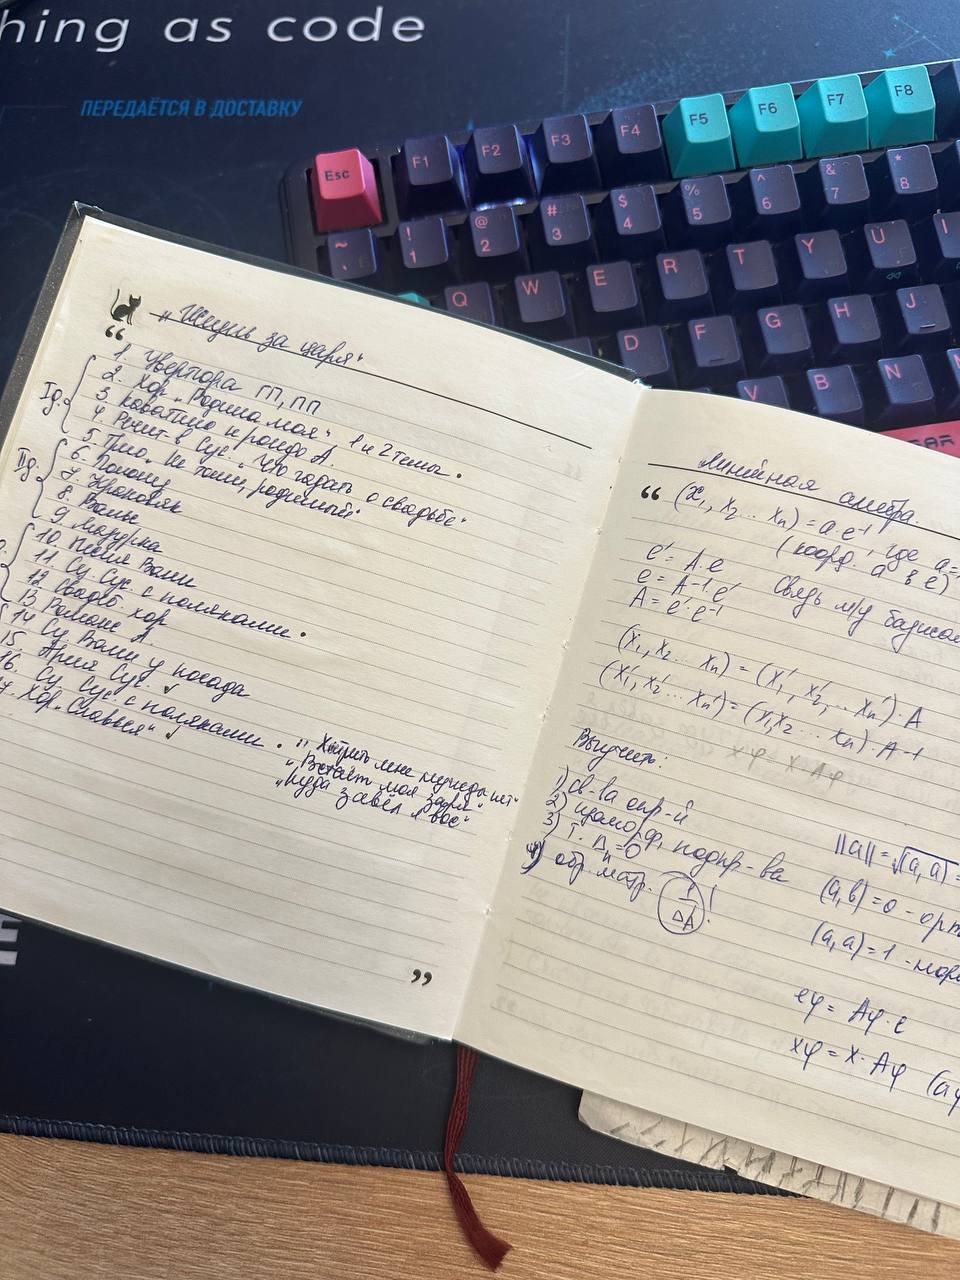 hing as code
ПЕРЕДАЁТСЯ В ДОСТАВКУ
Esc F1 F2 F3 F4 F5 F6 F7 F8
~ ` ! 1 @ 2 # 3 $ 4 % 5 ^ 6 & 7 * 8
Q W E R T Y U I
D F G H J
V B N
„Жизнь за царя“
“
1. Увертюра ГП, ПП
Iд. 2. Хор „Родина моя“ 1 и 2 темы.
3 Каватина и рондо А.
4. Речит-в Сус. „Что гадать о свадьбе“
5. Трио „Не томи, родимый“
IIд 6. Полонез
7. Краковяк
8. Вальс
9 Мазурка
10 Песня Вани
11 Сц. Сус. с поляками.
12 Свадеб. хор
13 Романс А
14 Сц Вани у посада
15 Ария Сус. ✓
16. Сц Сус. с поляками.
17. Хор „Славься“ ✓
„Хитрить мне нужды нет“
„Взойдёт моя заря“
„Куда завёл я вас“
”
Линейная алгебра.
“ (x₁, x₂ ... xₙ) = a·e⁻¹, где a=
(коорд. a в e)
e' = A·e Связь м/у базисам
e = A⁻¹·e'
A = e'·e⁻¹
(x₁, x₂ ... xₙ) = (x₁', x₂', ... xₙ')·A
(x₁', x₂' ... xₙ') = (x₁x₂ ... xₙ)·A⁻¹
xφ = x·Aφ
Выучить:
1) св-ва опр-й
2) изоморф. подпр-ва
3) т. Δₙ=0
4) обр. матр. 1/ΔA !
||a|| = √(a,a) =
(a,b)=0 - орт
(a,a)=1 - норм
eφ = Aφ·e
xφ = x·Aφ (aφ